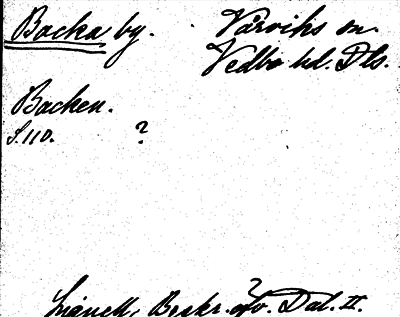 Backa by. Vårviks sn.
Vedbo hd. Dls.
Backen.
S. 110. ?
Lignell, Beskr. öfv. Dal. II.